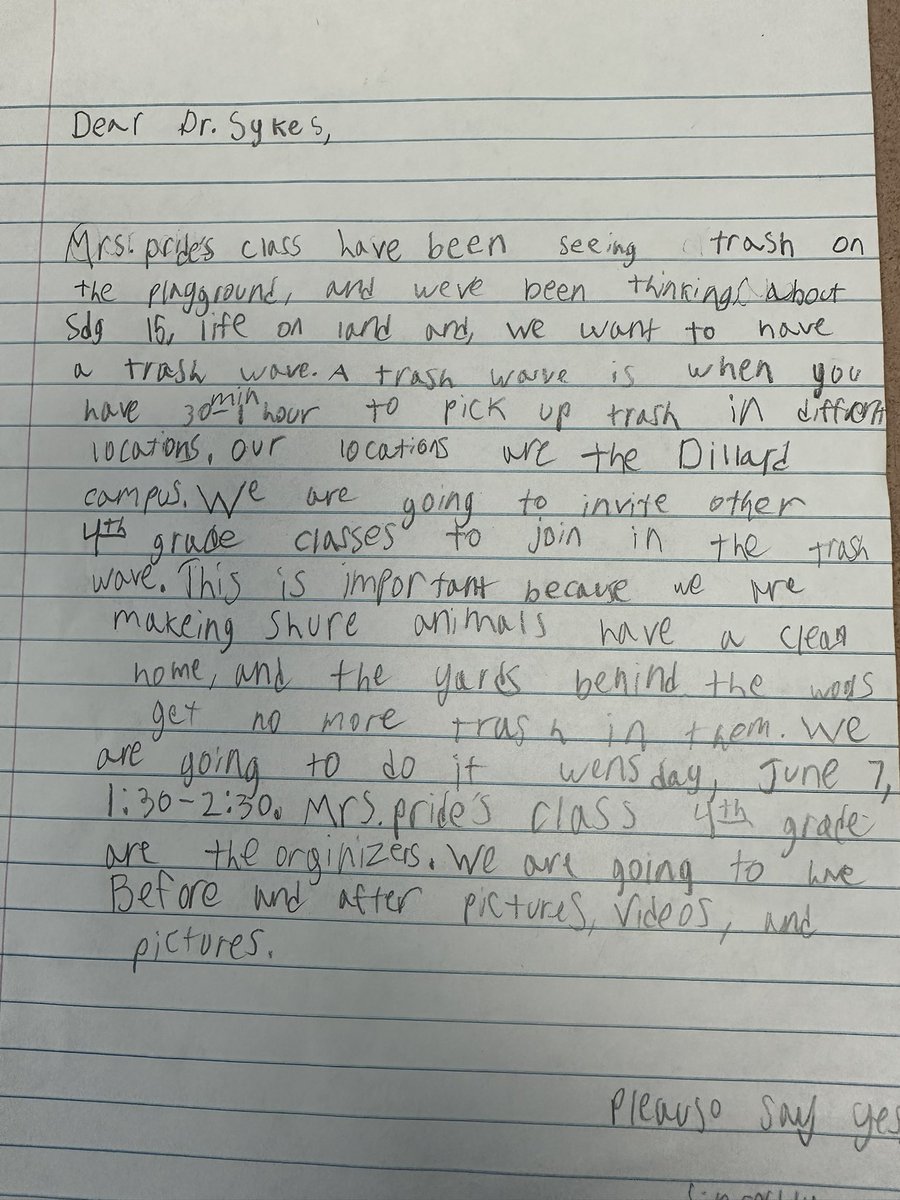 Dear Dr. Sykes,
Mrs. pride's class have been seeing trash on
the playground, and weve been thinking about
Sdg 15, life on land and, we want to have
a trash wave. A trash wave is when you
have 30min-1 hour to pick up trash in diffrent
locations. our locations are the Dillard
campus. We are going to invite other
4th grade classes to join in the trash
wave. This is important because we are
makeing shure animals have a clean
home, and the yards behind the woods
get no more trash in them. We
are going to do it wensday, June 7,
1:30-2:30. Mrs. pride's class 4th grade
are the orginizers. We are going to have
Before and after pictures, videos, and
pictures.
say yes